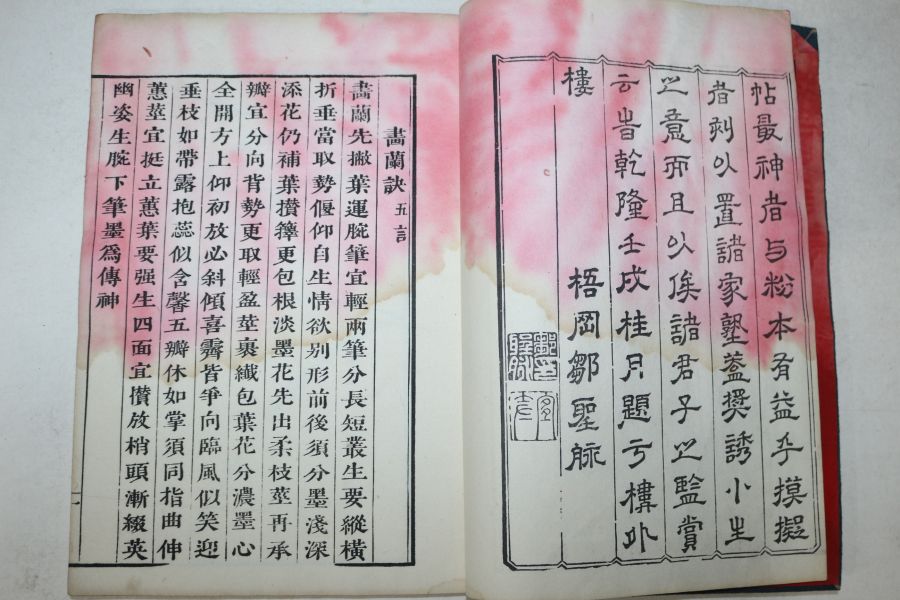 帖最神者与粉本有益乎摸擬
者刻以置諸家塾蓋奨誘小生
之意而且以俟諸君子之監賞
云旹乾隆壬戌桂月題于樓外
樓
梧岡鄒聖脉
畵蘭訣 五言
畵蘭先撇葉運腕筆宜輕兩筆分長短叢生要縱橫
折垂當取勢偃仰自生情欲別形前後須分墨淺深
添花仍補葉攅籜更包根淡墨花先出柔枝莖再承
瓣宜分向背勢更取輕盈莖裹纖包葉花分濃墨心
全開方上仰初放必斜傾喜霽皆爭向臨風似笑迎
垂枝如帶露抱蕊似含馨五瓣休如掌須同指曲伸
蕙莖宜挺立蕙葉要强生四面宜攅放梢頭漸綴英
幽姿生腕下筆墨爲傳神
一